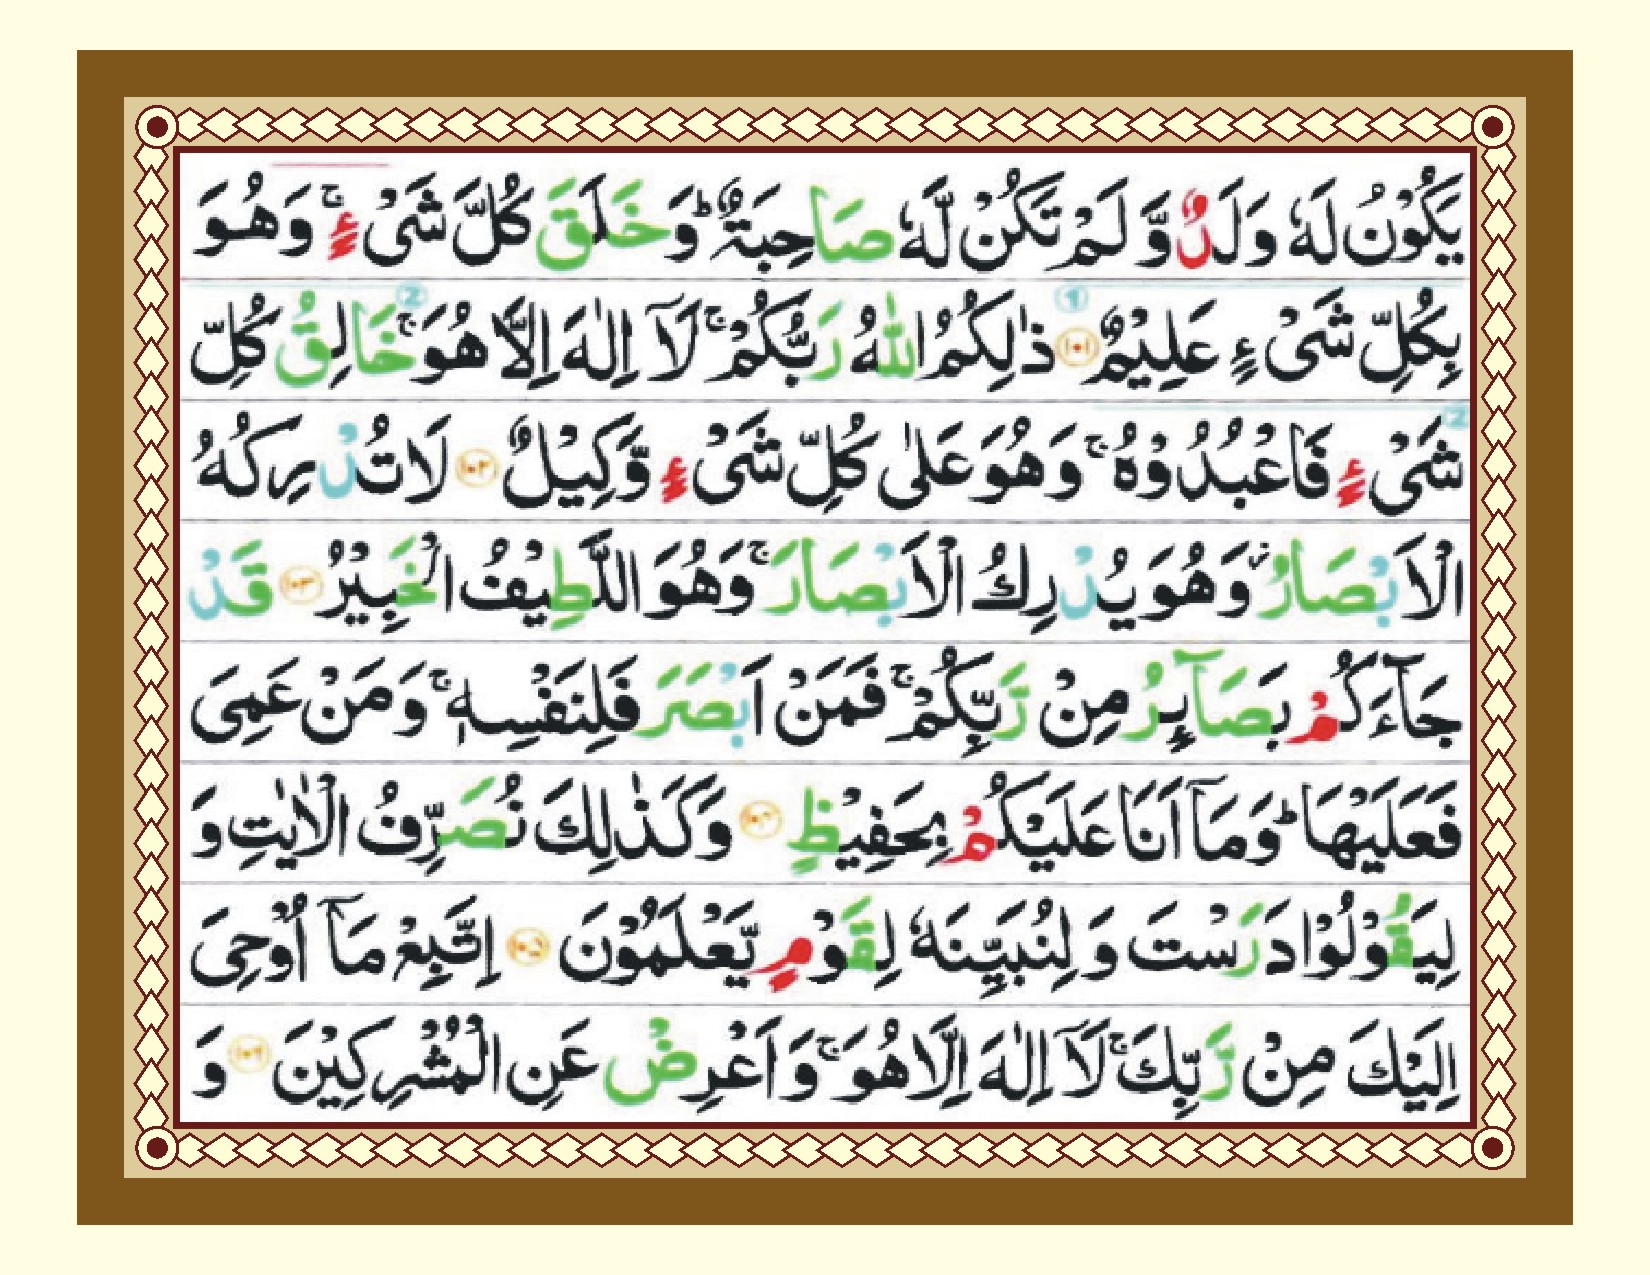 يَكُوْنُ لَهٗ وَلَدٌ وَّ لَمْ تَكُنْ لَّهٗ صَاحِبَةٌ ؕ وَ خَلَقَ كُلَّ شَیْءٍ ۚ وَ هُوَ
بِكُلِّ شَیْءٍ عَلِيْمٌ ﴿۱۰۱﴾ ذٰلِكُمُ اللّٰهُ رَبُّكُمْ ۚ لَاۤ اِلٰهَ اِلَّا هُوَ ۚ خَالِقُ كُلِّ
شَیْءٍ فَاعْبُدُوْهُ ۚ وَ هُوَ عَلٰى كُلِّ شَیْءٍ وَّكِيْلٌ ﴿۱۰۲﴾ لَا تُدْرِكُهُ
الْاَبْصَارُ ؗ وَ هُوَ يُدْرِكُ الْاَبْصَارَ ۚ وَ هُوَ اللَّطِيْفُ الْخَبِيْرُ ﴿۱۰۳﴾ قَدْ
جَآءَكُمْ بَصَآىِٕرُ مِنْ رَّبِّكُمْ ۚ فَمَنْ اَبْصَرَ فَلِنَفْسِهٖ ۚ وَ مَنْ عَمِیَ
فَعَلَيْهَا ؕ وَ مَاۤ اَنَا عَلَيْكُمْ بِحَفِيْظٍ ﴿۱۰۴﴾ وَ كَذٰلِكَ نُصَرِّفُ الْاٰيٰتِ وَ
لِيَقُوْلُوْا دَرَسْتَ وَ لِنُبَيِّنَهٗ لِقَوْمٍ يَّعْلَمُوْنَ ﴿۱۰۵﴾ اِتَّبِعْ مَاۤ اُوْحِیَ
اِلَيْكَ مِنْ رَّبِّكَ ۚ لَاۤ اِلٰهَ اِلَّا هُوَ ۚ وَ اَعْرِضْ عَنِ الْمُشْرِكِيْنَ ﴿۱۰۶﴾ وَ